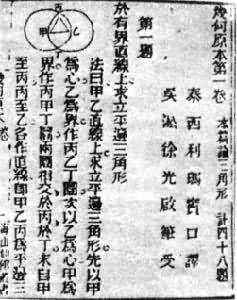 幾何原本第一卷 本篇論三角形 計四十八題
泰西利瑪竇口譯
吳淞徐光啓筆受
第一題
於有界直線上求立平邊三角形
丙
甲
乙
丁
法曰甲乙直線上求立平邊三角形先以甲
為心乙為界作丙乙丁圜次以乙為心甲為
界作丙甲丁圜兩圜相交於丙於丁末自甲
至丙丙至乙各作直線即甲乙丙為平邊三